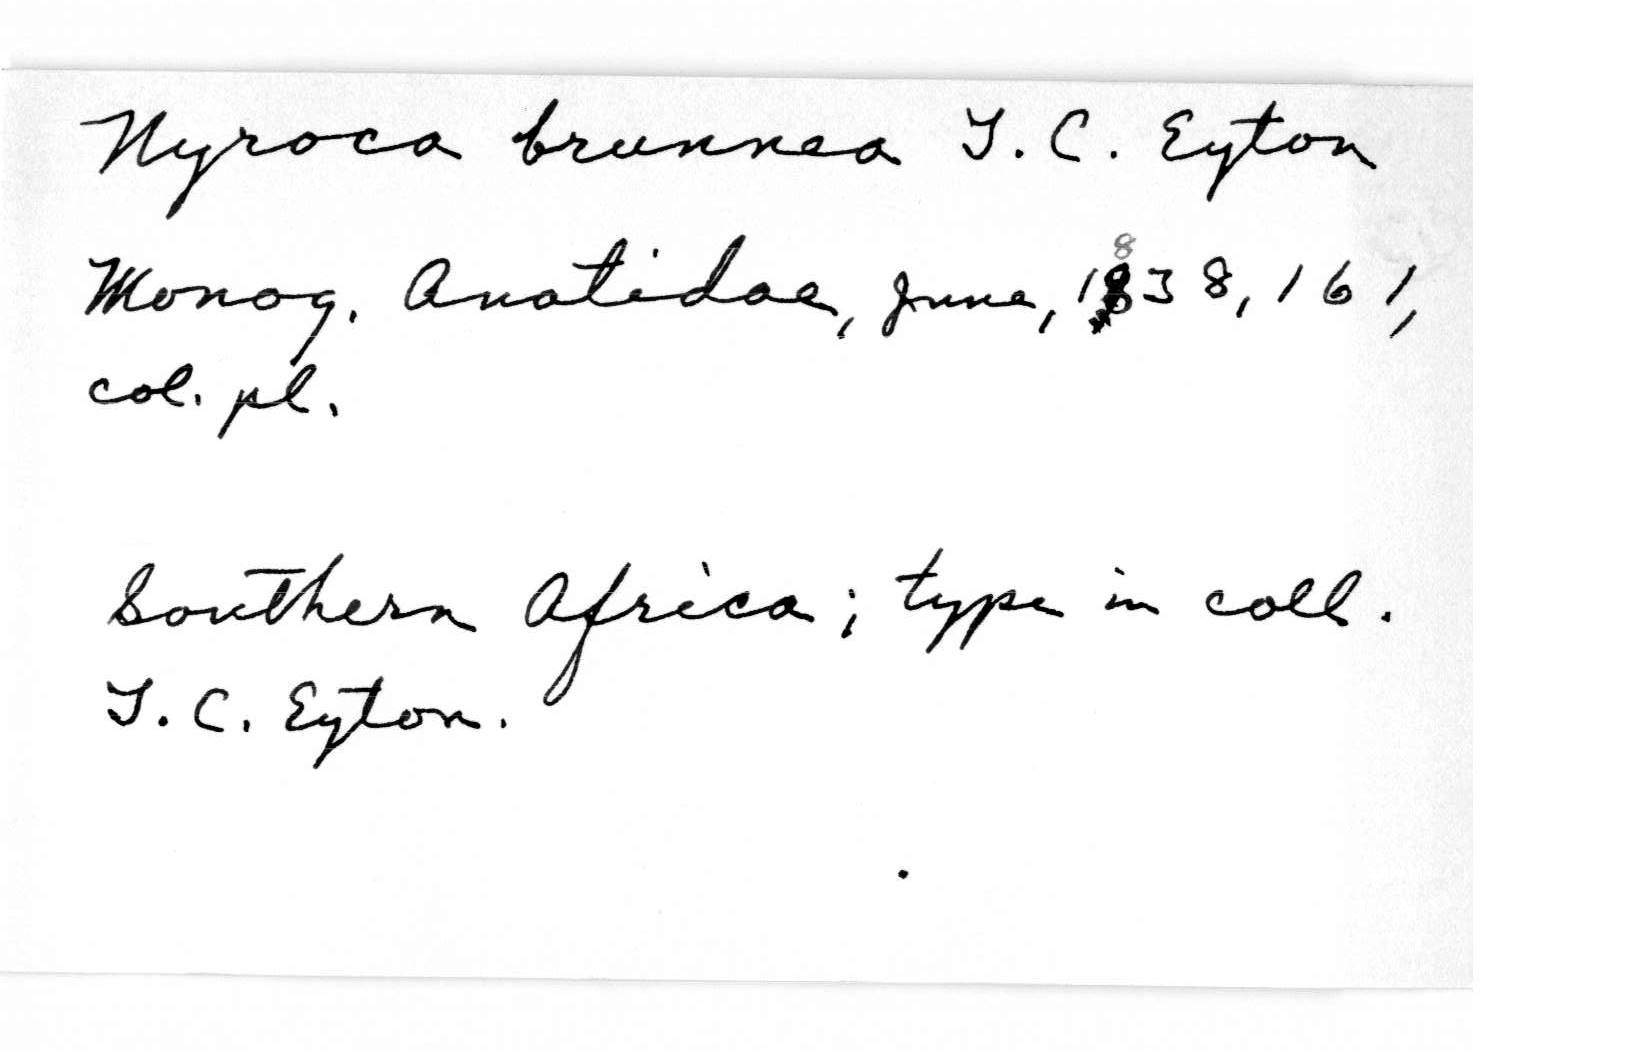 Nyroca brunnea T. C. Eyton
Monog. Anatidae, June, 1838, 161,
col. pl.
Southern Africa; type in coll.
T. C. Eyton.